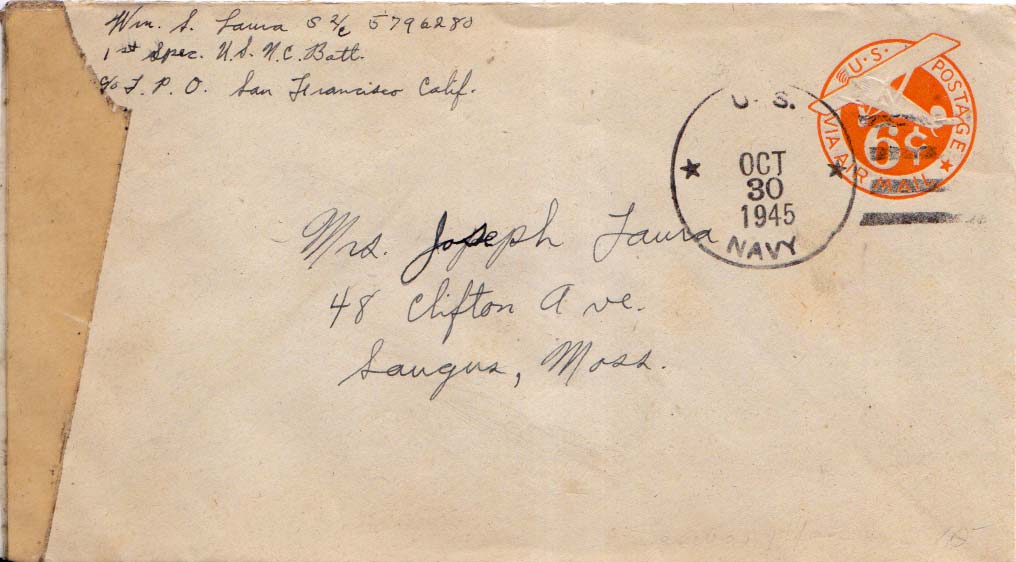 Wm. S. Laura S 2/c 5796280
1st Spec. U.S.N.C. Batt.
c/o F. P. O. San Francisco Calif.
U.S. POSTAGE
6¢
VIA AIR MAIL
U. S.
OCT
30
1945
NAVY
Mrs. Joseph Laura
48 Clifton Ave.
Saugus, Mass.